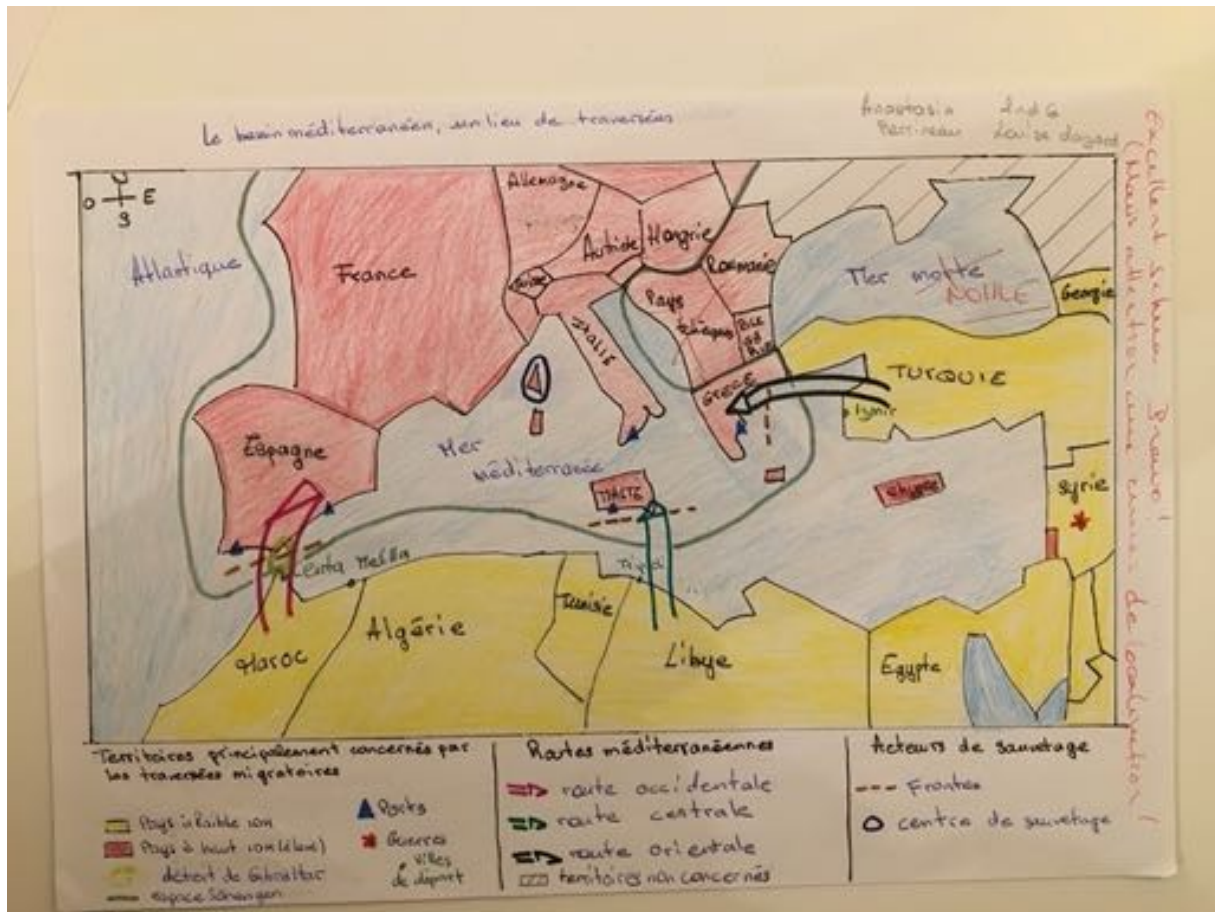 Le bassin méditerranéen, un lieu de traversées
Anastasia 2nd 6
Perrineau Louise
Excellent schéma Bravo!
(Mais attention aux erreurs de localisation!
O E
S
Atlantique
France
Allemagne
Suisse
Autriche
Hongrie
Roumanie
Mer morte
NOIRE
Georgie
Italie
Pays
GRECE
TURQUIE
Izmir
Espagne
Mer
méditerranée
MALTE
Chypre
Syrie
Ceuta Melilla
Tripoli
Maroc
Algérie
Tunisie
Libye
Egypte
Territoires principalement concernés par
les traversées migratoires
Pays à faible IDH
Pays à haut IDH (élevé)
détroit de Gibraltar
espace Schengen
Ports
Guerres
villes
de départ
Routes méditerranéennes
route occidentale
route centrale
route orientale
territoires non concernés
Acteurs de sauvetage
Frontex
centre de sauvetage